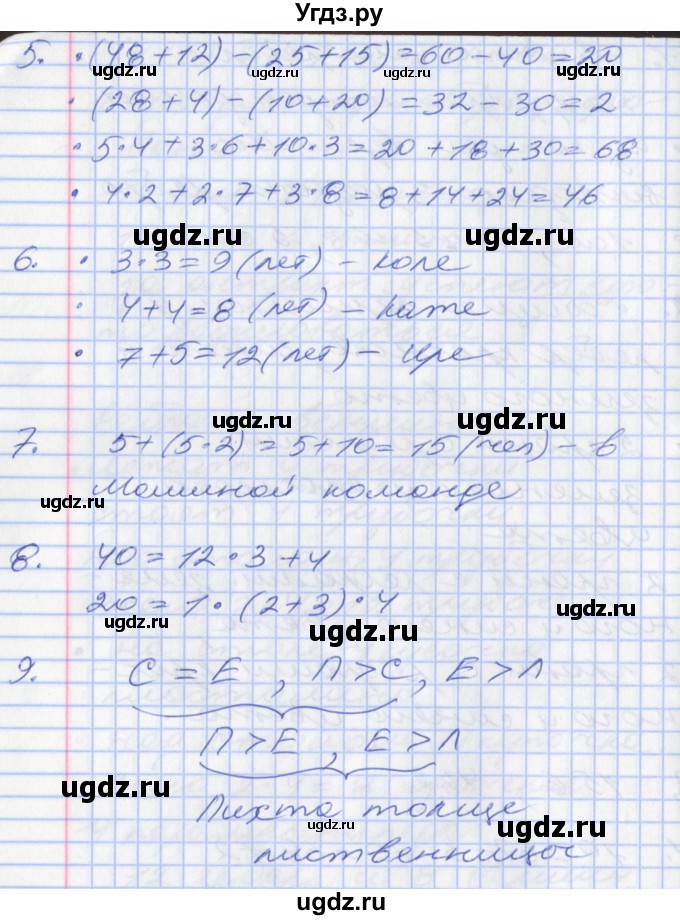 Угдз.ру
5. • (48 + 12) - (25 + 15) = 60 - 40 = 20
ugdz.ru ugdz.ru ugdz.ru
• (28 + 4) - (10 + 20) = 32 - 30 = 2
• 5 • 4 + 3 • 6 + 10 • 3 = 20 + 18 + 30 = 68
• 4 • 2 + 2 • 7 + 3 • 8 = 8 + 14 + 24 = 46
ugdz.ru ugdz.ru
6. • 3 • 3 = 9 (лет) - Коле
• 4 + 4 = 8 (лет) - Кате
ugdz.ru ugdz.ru
• 7 + 5 = 12 (лет) - Ире
ugdz.ru ugdz.ru
7. 5 + (5 • 2) = 5 + 10 = 15 (чел) - в
Машиной команде
ugdz.ru ugdz.ru ugdz.ru
8. 40 = 12 • 3 + 4
20 = 1 • (2 + 3) • 4
ugdz.ru ugdz.ru ugdz.ru
9. С = Е, П > С, Е > Л
П > Е, Е > Л
ugdz.ru ugdz.ru
ugdz.ru
Пихта толще
ugdz.ru
лиственницы
ugdz.ru ugdz.ru